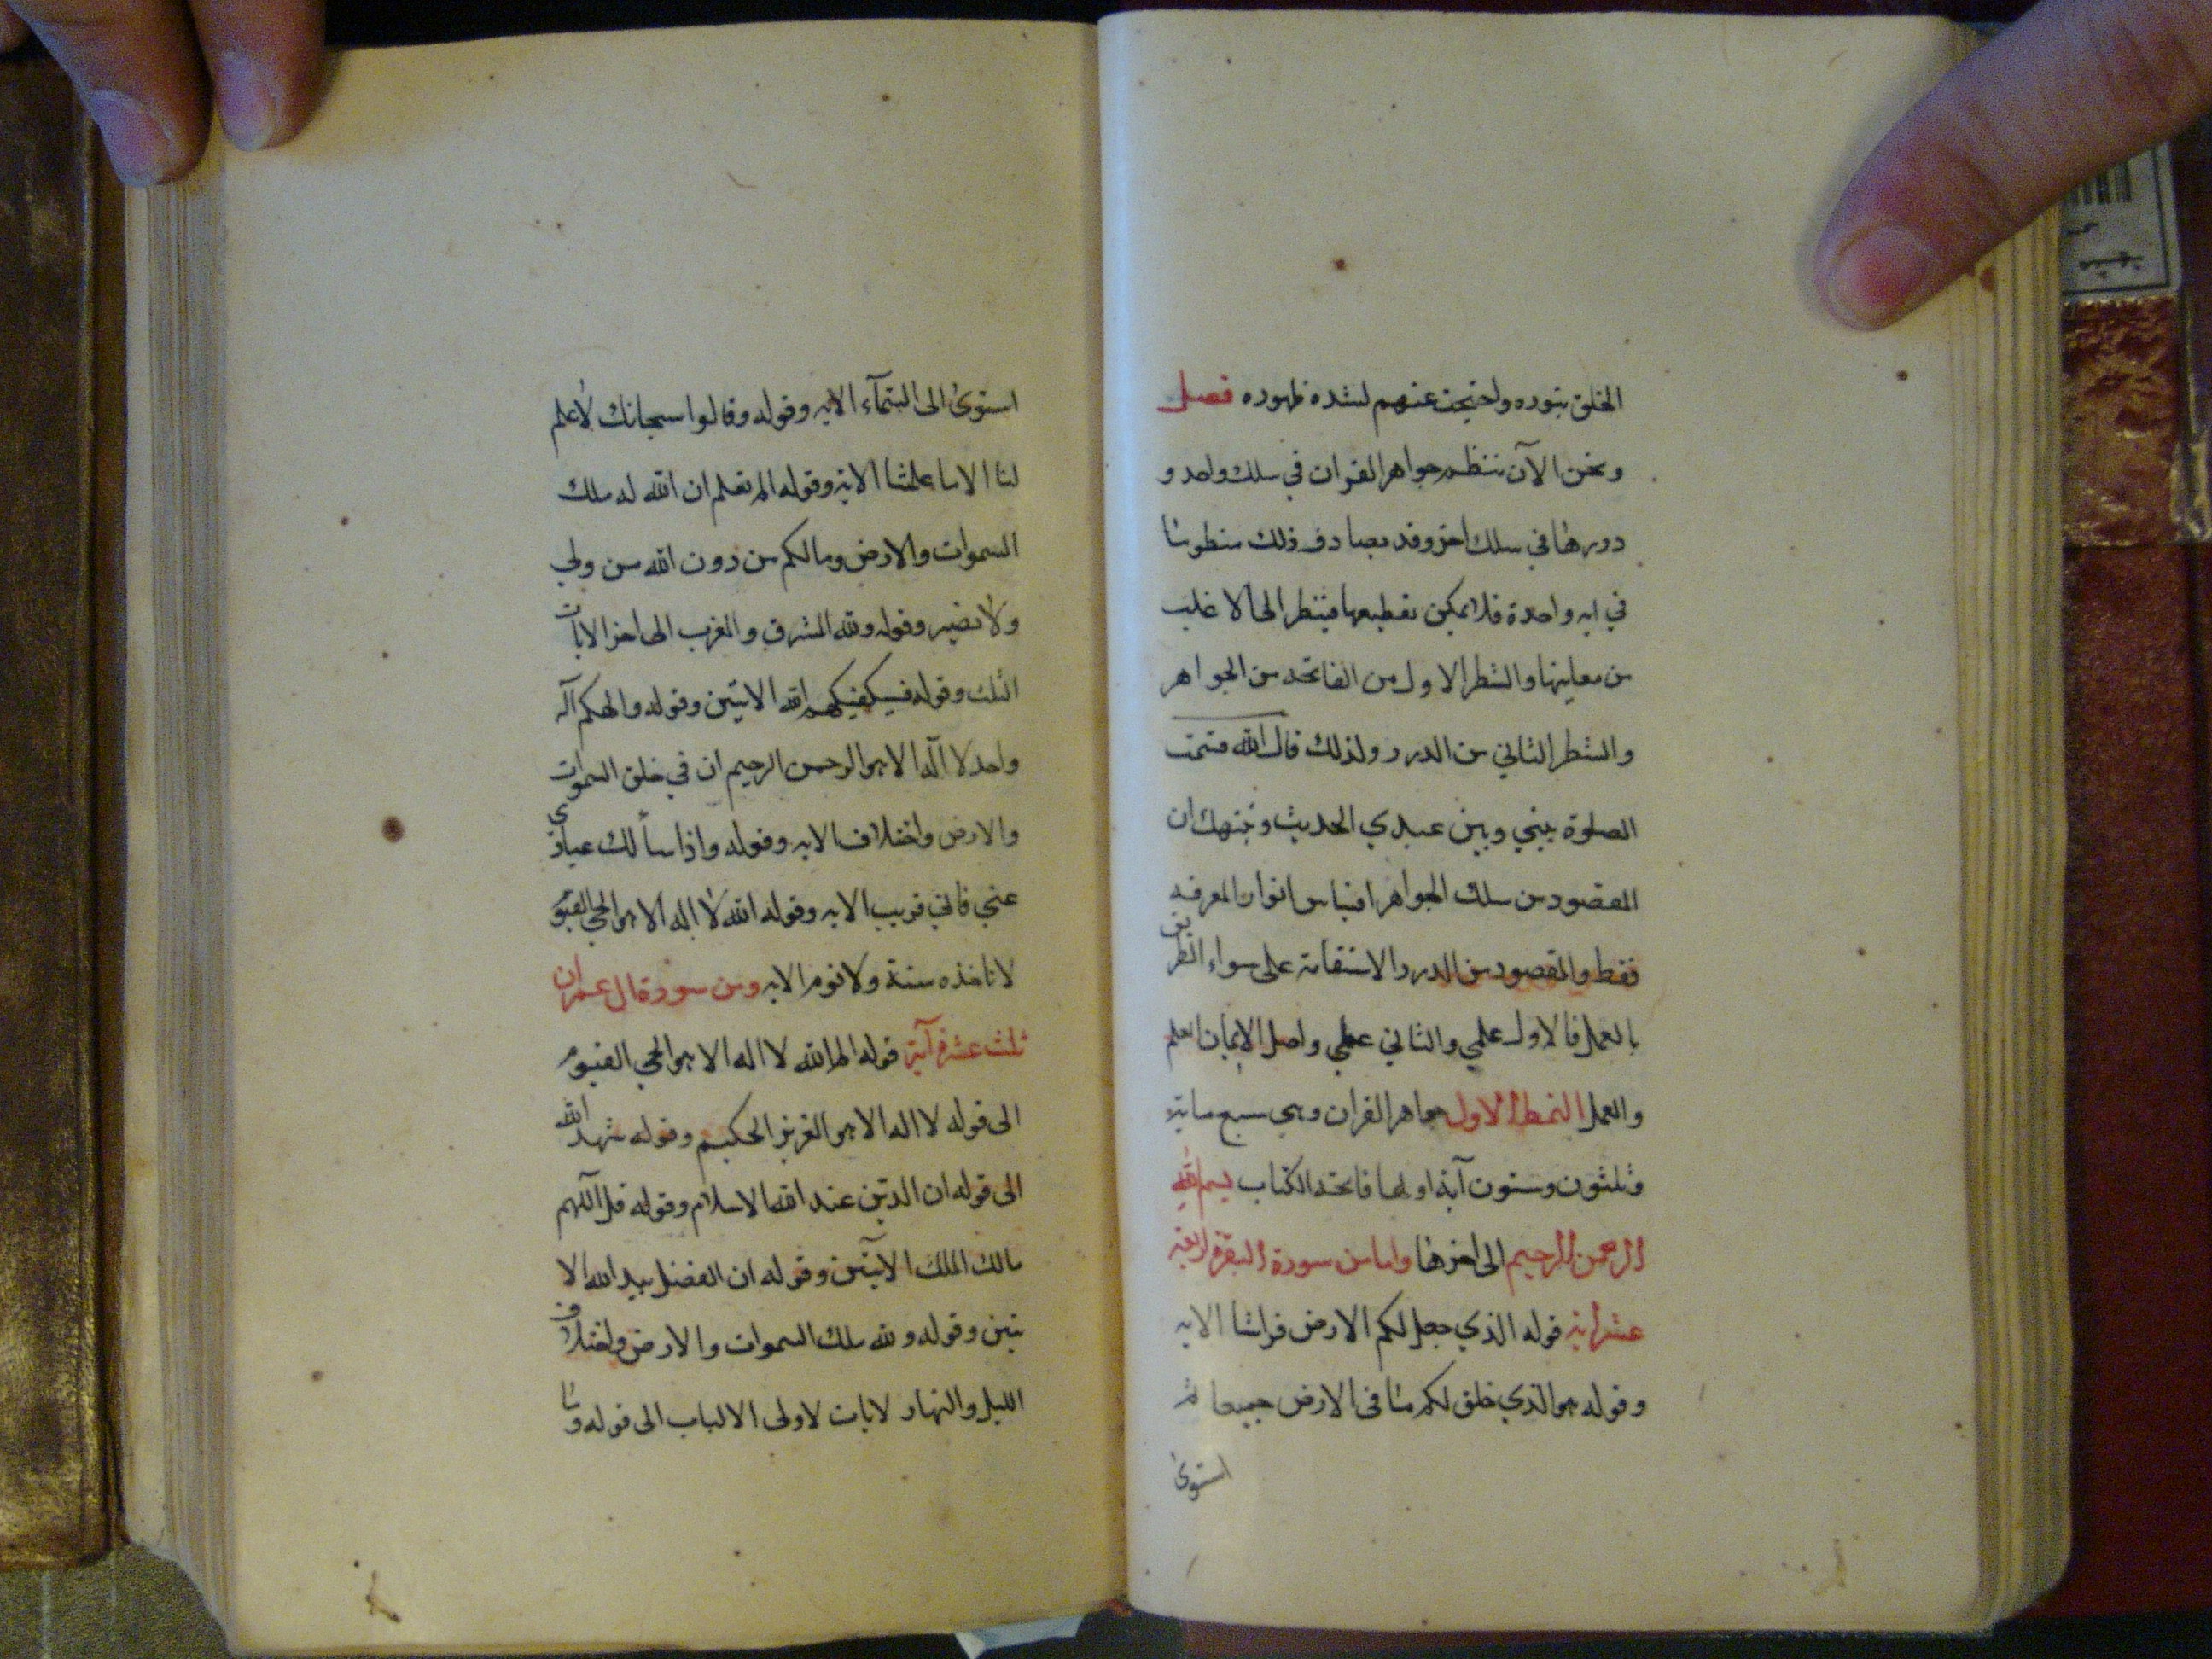 الخلق بنوره واحتجت عنهم لشده ظهوره فصل
ونحن الآن ننظم جواهر القران في سلك واحد و
دررها في سلك اخر وقد يصادف ذلك منظوما
في ايه واحدة فلا يمكن تقطيعها فينظر الى الاغلب
من معاينها والشطر الاول من الفاتحه من الجواهر
والشطر الثاني من الدرر ولذلك قال الله قسمت
الصلوة بيني وبين عبدي الحديث وننبهك ان
المقصود من سلك الجواهر اقتباس انوار المعرفه
فقط والمقصود من الدرر الاستقامة على سواء الطريق
بالعمل فالاول علمي والثاني عملي واصل الايمان العلم
والعمل النمط الاول جواهر القران وهي سبع ماية
وثلثون وستون آية اولها فاتحة الكتاب بسم الله
الرحمن الرحيم الى اخرها واما من سورة البقرة اربعة
عشر اية قوله الذي جعل لكم الارض فراشا الايه
وقوله هو الذي خلق لكم ما في الارض جميعا ثم
استوى
استوى الى السمآء الايه وقوله وقالوا سبحانك لا علم
لنا الا ما علمتنا الاية وقوله الم تعلم ان الله له ملك
السموات والارض وما لكم من دون الله من ولي
ولا نصير وقوله ولله المشرق والمغرب الى اخر الايات
الثلث وقوله فسيكفيكهم الله الايتين وقوله والهكم آله
واحد لا آله الا هو الرحمن الرحيم ان في خلق السموات
والارض واختلاف الايه وقوله واذا سألك عبادي
عني فاني قريب الايه وقوله الله لا اله الا هو الحي القيو
لا تاخذه سنة ولا نوم الايه ومن سورة ال عمران
ثلث عشرة آية قوله الم الله لا اله الا هو الحي القيوم
الى قوله لا اله الا هو العزيز الحكيم وقوله شهد الله
الى قوله ان الدين عند الله الاسلام وقوله قل اللهم
مالك الملك الآيتين وقوله ان الفضل بيد الله الا
يتين وقوله ولله ملك السموات والارض واختلاف
الليل والنهار لايات لاولى الالباب الى قوله وما